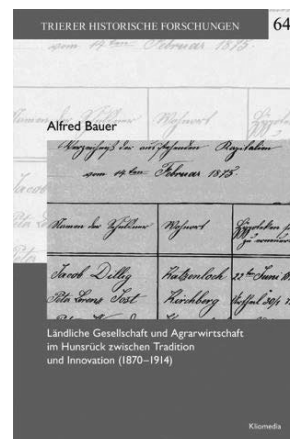 TRIERER HISTORISCHE FORSCHUNGEN
64
vom 19ten Februar 1875.
Namen der Schuldner Wohnort
Alfred Bauer
Verzeichniß der ausstehenden Kapitalien
vom 19ten Februar 1875
Namen der Schuldner Wohnort
Jacob Dillig Katzenloch 22te Juni
Peter Lorenz Jost Kirchberg
Ländliche Gesellschaft und Agrarwirtschaft
im Hunsrück zwischen Tradition
und Innovation (1870–1914)
Kliomedia